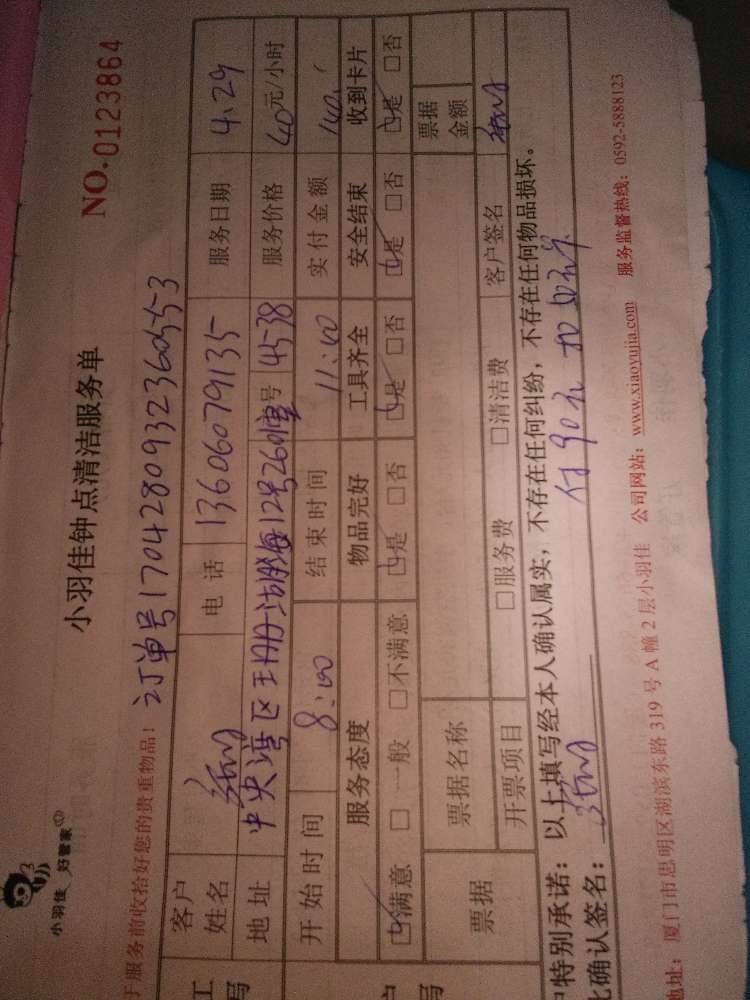 小羽佳 好管家
小羽佳钟点清洁服务单
NO.0123864
于服务前收拾好您的贵重物品!
订单号17042809323605553
客户姓名
电话 13606079135
服务日期 4.29
地址 中央湾区
12号2601室号 45-38
服务价格 40元/小时
开始时间 8:00 结束时间 11:40 实付金额 140.
服务态度 物品完好 工具齐全 安全结束 收到卡片
☑满意 □一般 □不满意 ☑是 □否 ☑是 □否 ☑是 □否 ☑是 □否
票据 票据名称 票据金额
开票项目 □服务费 □清洁费 客户签名
特别承诺:以上填写经本人确认属实,不存在任何纠纷,不存在任何物品损坏。
此确认签名:
付90元
地址:厦门市思明区湖滨东路319号A幢2层小羽佳 公司网站:www.xiaoyujia.com 服务监督热线:0592-5888123